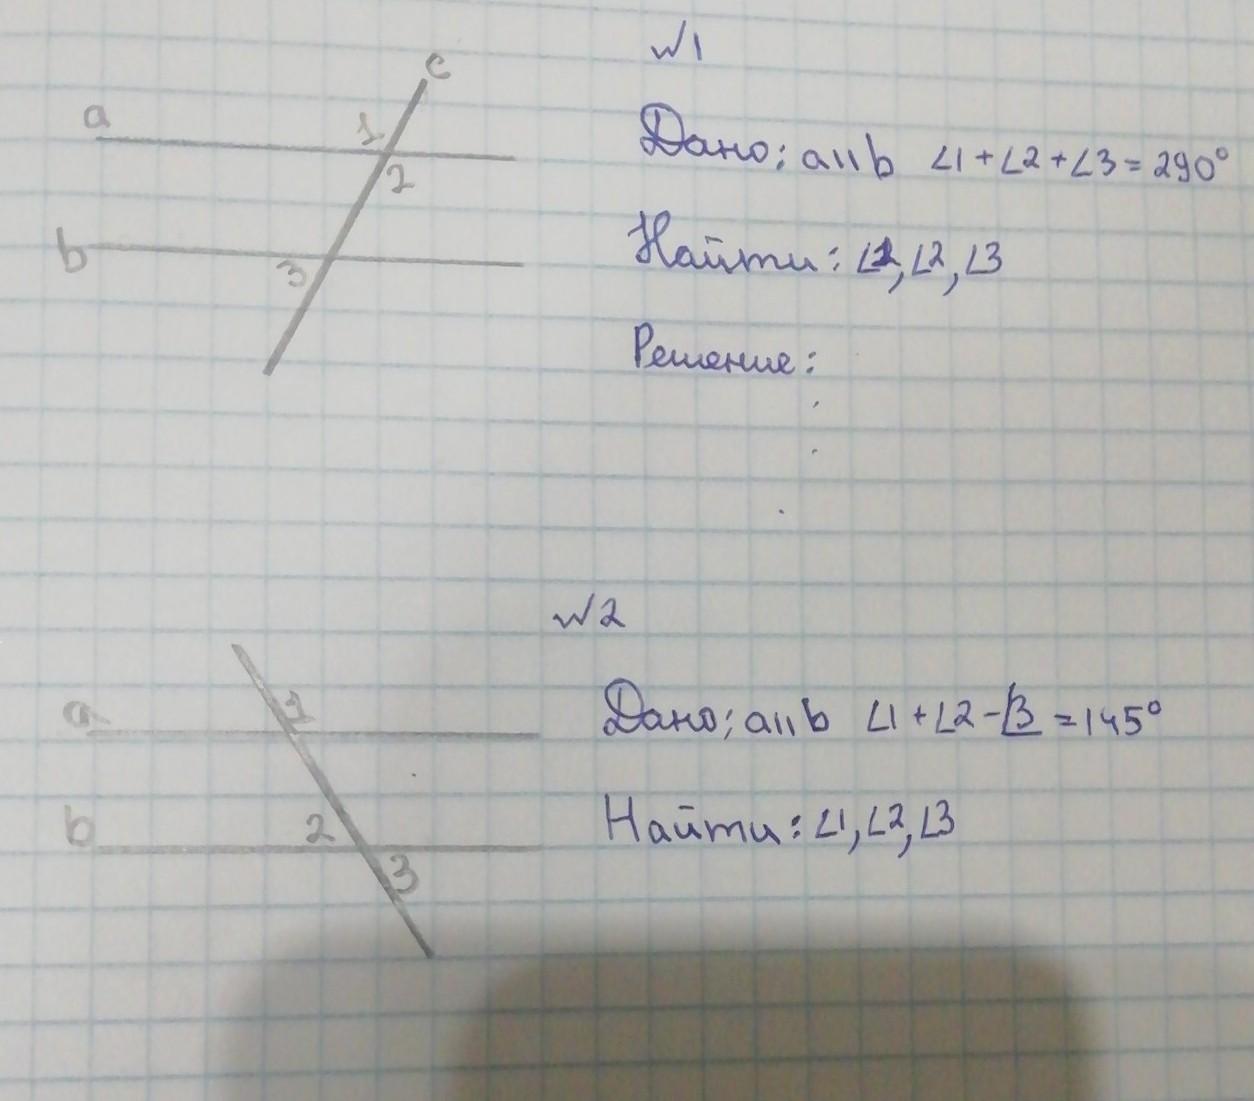 №1
c
a
1
2
b
3
Дано: a||b ∠1+∠2+∠3=290°
Найти: ∠1,∠2,∠3
Решение:
№2
a
1
b
2
3
Дано: a||b ∠1+∠2-∠3=145°
Найти: ∠1,∠2,∠3